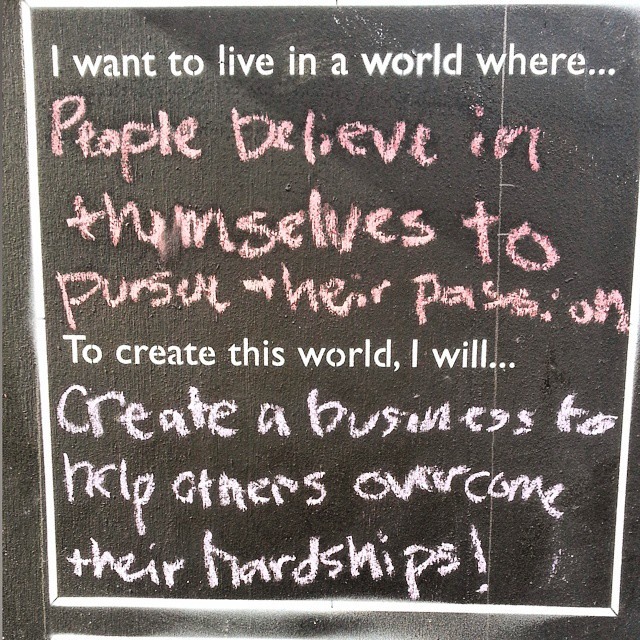 I want to live in a world where...
People believe in
themselves to
pursue their passion
To create this world, I will...
Create a business to
help others overcome
their hardships!